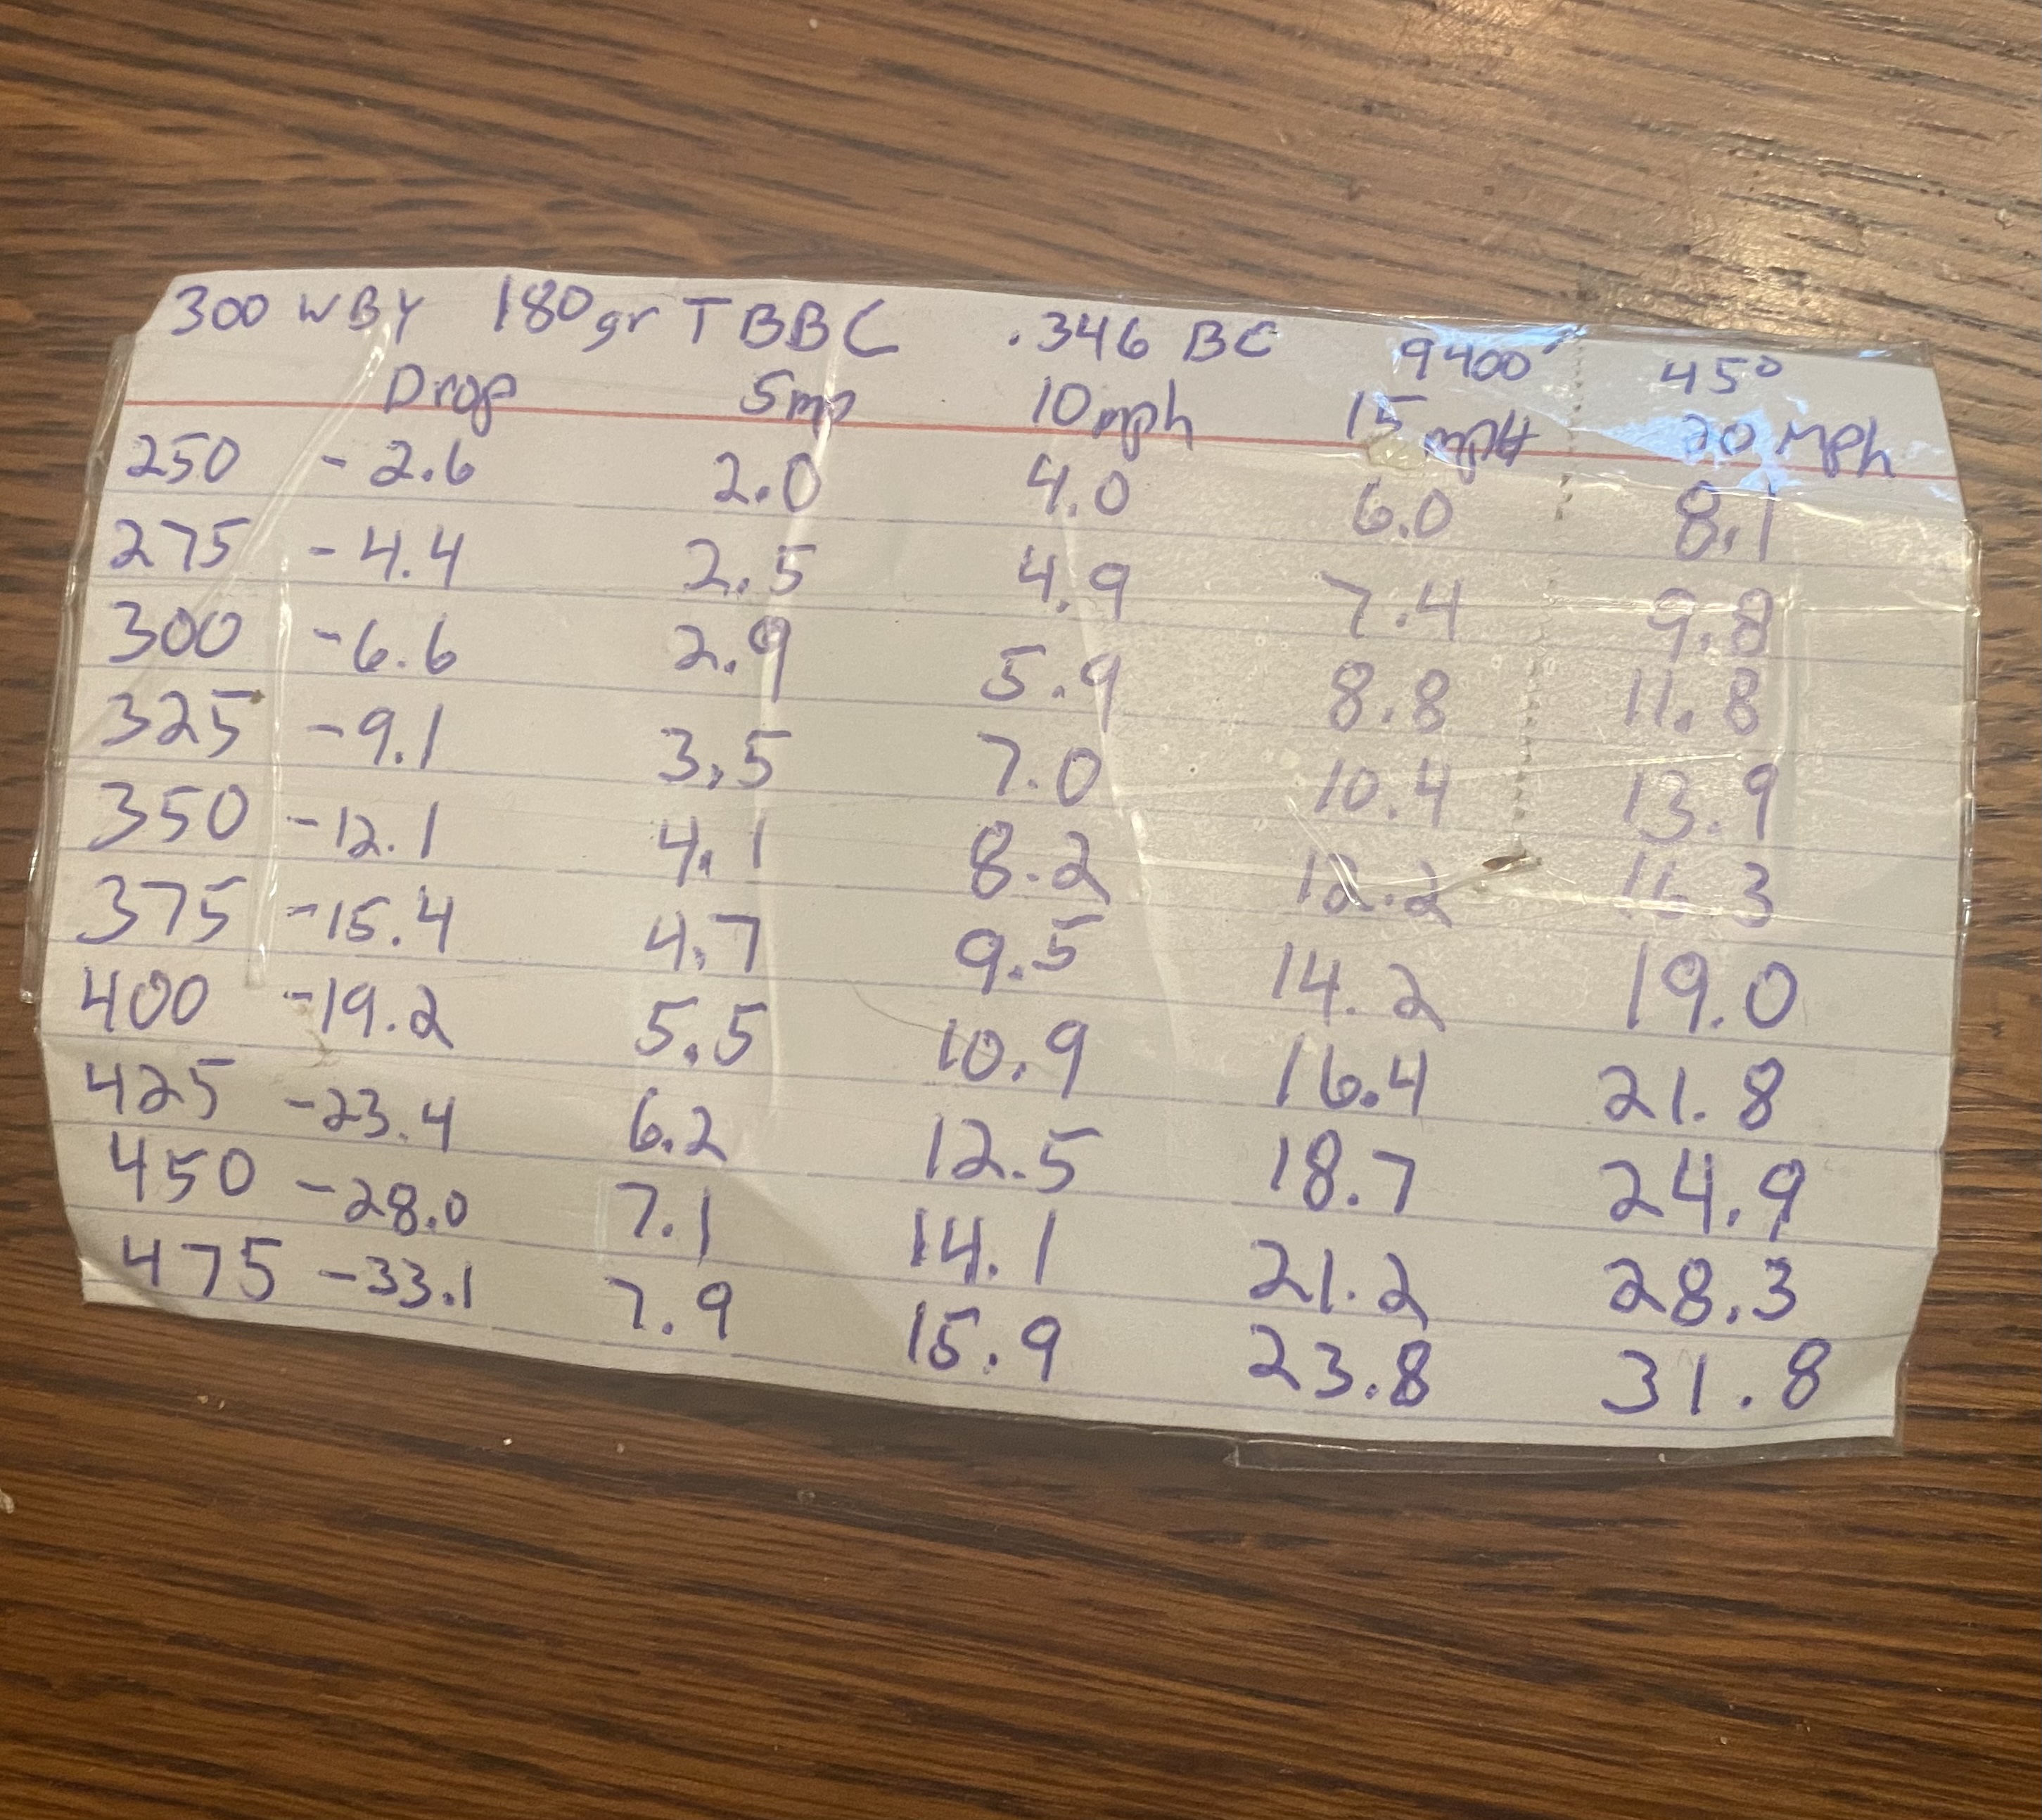 300 WBY 180gr TBBC .346 BC 9400' 45°
Drop 5mp 10mph 15mpH 20 Mph
250 -2.6 2.0 4.0 6.0 8.1
275 -4.4 2.5 4.9 7.4 9.8
300 -6.6 2.9 5.9 8.8 11.8
325 -9.1 3.5 7.0 10.4 13.9
350 -12.1 4.1 8.2 12.2 16.3
375 -15.4 4.7 9.5 14.2 19.0
400 -19.2 5.5 10.9 16.4 21.8
425 -23.4 6.2 12.5 18.7 24.9
450 -28.0 7.1 14.1 21.2 28.3
475 -33.1 7.9 15.9 23.8 31.8